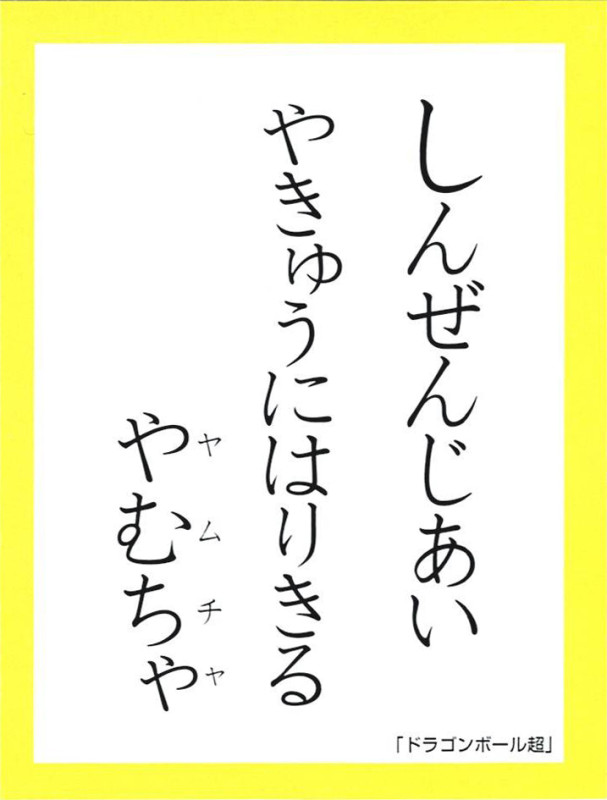 しんぜんじあい
やきゅうにはりきる
やむちゃ
ヤムチャ
「ドラゴンボール超」